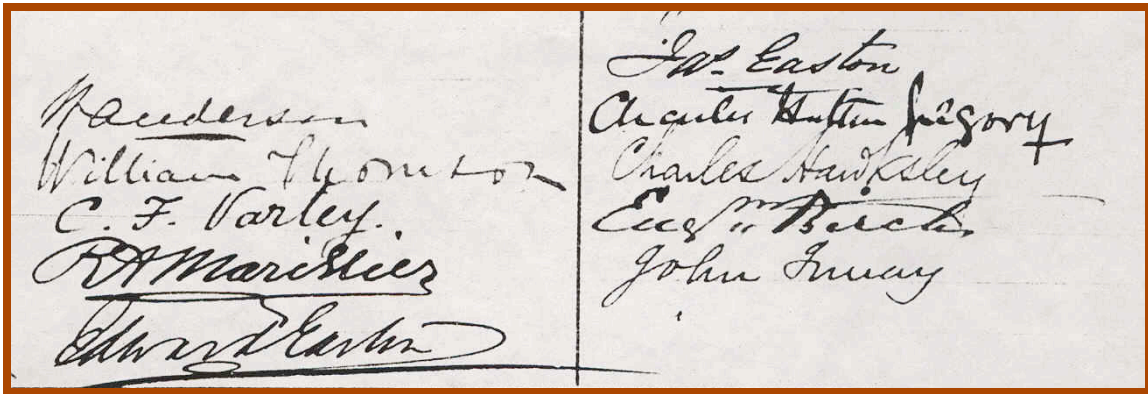 W Anderson
William Thomson
C. F. Varley.
R A Marillier
Edward Easton
Jas. Easton
Charles Hutton Gregory
Charles Hawksley
Eugs Birch
John